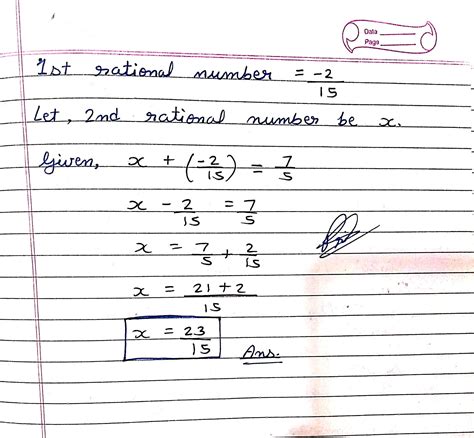 Data
Page
1st rational number = -2/15
Let, 2nd rational number be x.
Given, x + (-2/15) = 7/5
x - 2/15 = 7/5
x = 7/5 + 2/15
x = 21+2/15
x = 23/15 Ans.